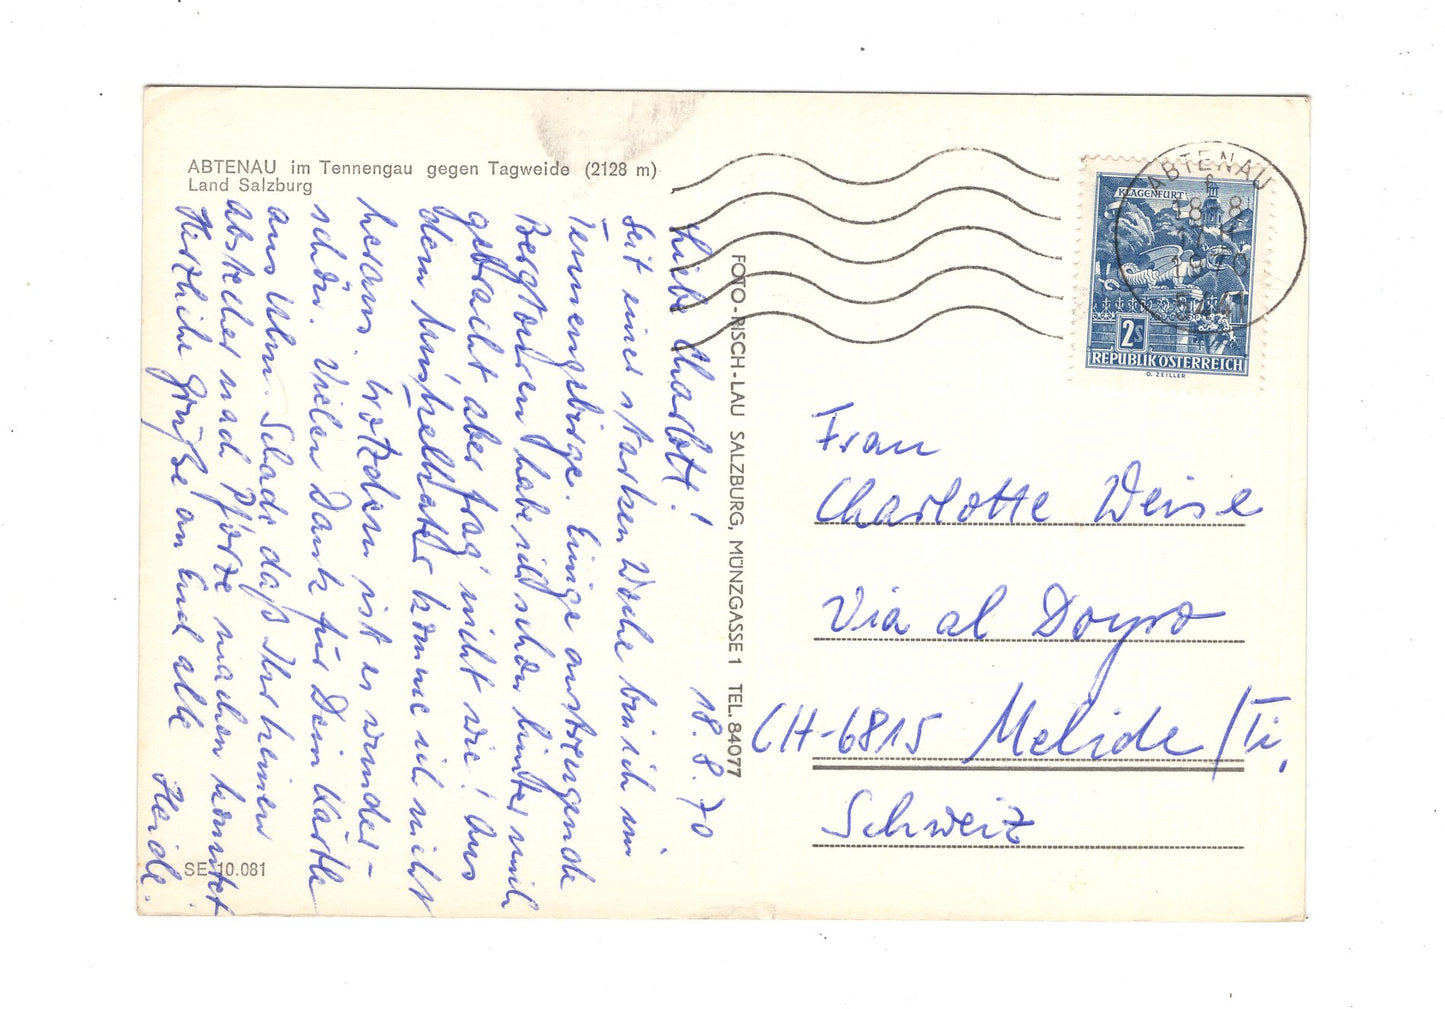 ABTENAU im Tennengau gegen Tagweide (2128 m)
Land Salzburg
Liebe Charlott!
18.8.70
Seit einer starken Woche bin ich im
Tennengebirge. Einige anstrengende
Bergtouren habe ich schon hinter mich
gebracht aber frag' nicht wie! Aus
dem Muskelkater komme ich nicht
heraus, trotzdem ist es wunder-
schön. Vielen Dank für Dein Kärtle
aus Ulm. Schade, daß Ihr keinen
abstecher nach Pforze machen konntet.
Herzliche Grüße an Euch alle
Heide.
SE 10.081
FOTO-RISCH-LAU SALZBURG, MÜNZGASSE 1 TEL. 84077
ABTENAU
18.8
1970
5441
KLAGENFURT
2S
REPUBLIK ÖSTERREICH
O. ZEILLER
Frau
Charlotte Weise
Via al Doyro
CH-6815 Melide/Ti.
Schweiz